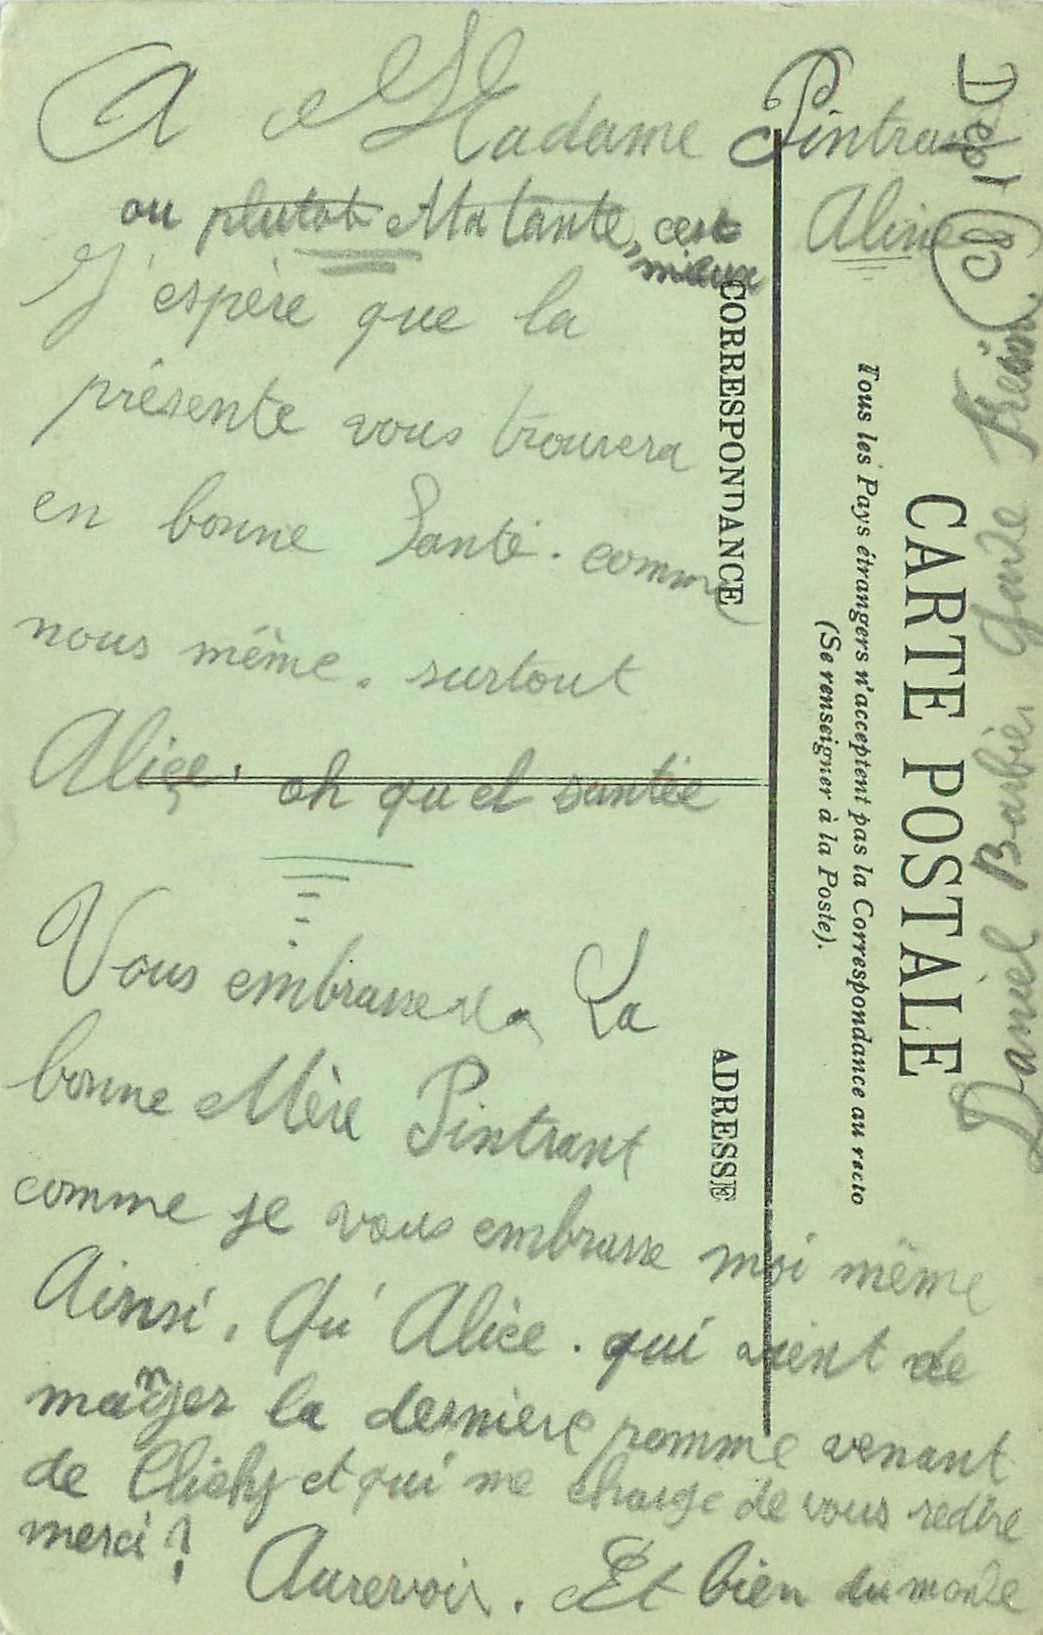 A Madame Pintrant
ou plutôt Ma tante, c'est mieux
Aline
J'espère que la
présente vous trouvera
en bonne Santé. comme
nous même. surtout
Alice. oh quel santée
Vous embrasserez La
bonne Mère Pintrant
comme je vous embrasse moi même
Ainsi. Qu'Alice. qui vient de
manger la derniere pomme venant
de Clichy et qui me charge de vous redire
merci!
Aurevoir. Et bien du monde
CORRESPONDANCE
ADRESSE
CARTE POSTALE
Tous les Pays étrangers n'acceptent pas la Correspondance au recto
(Se renseigner à la Poste).
Daniel Barbier
Dep 1
80